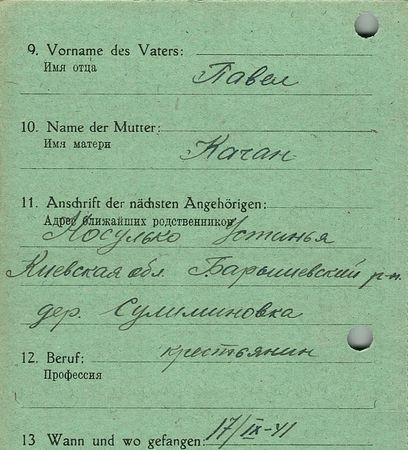 9. Vorname des Vaters:
Имя отца
Павел
10. Name der Mutter:
Имя матери
Качан
11. Anschrift der nächsten Angehörigen:
Адрес ближайших родственников
Носулько Устинья
Киевская обл. Барышевский р-н.
дер. Сулиминовка
12. Beruf: крестьянин
Профессия
13 Wann und wo gefangen: 17/IX-41